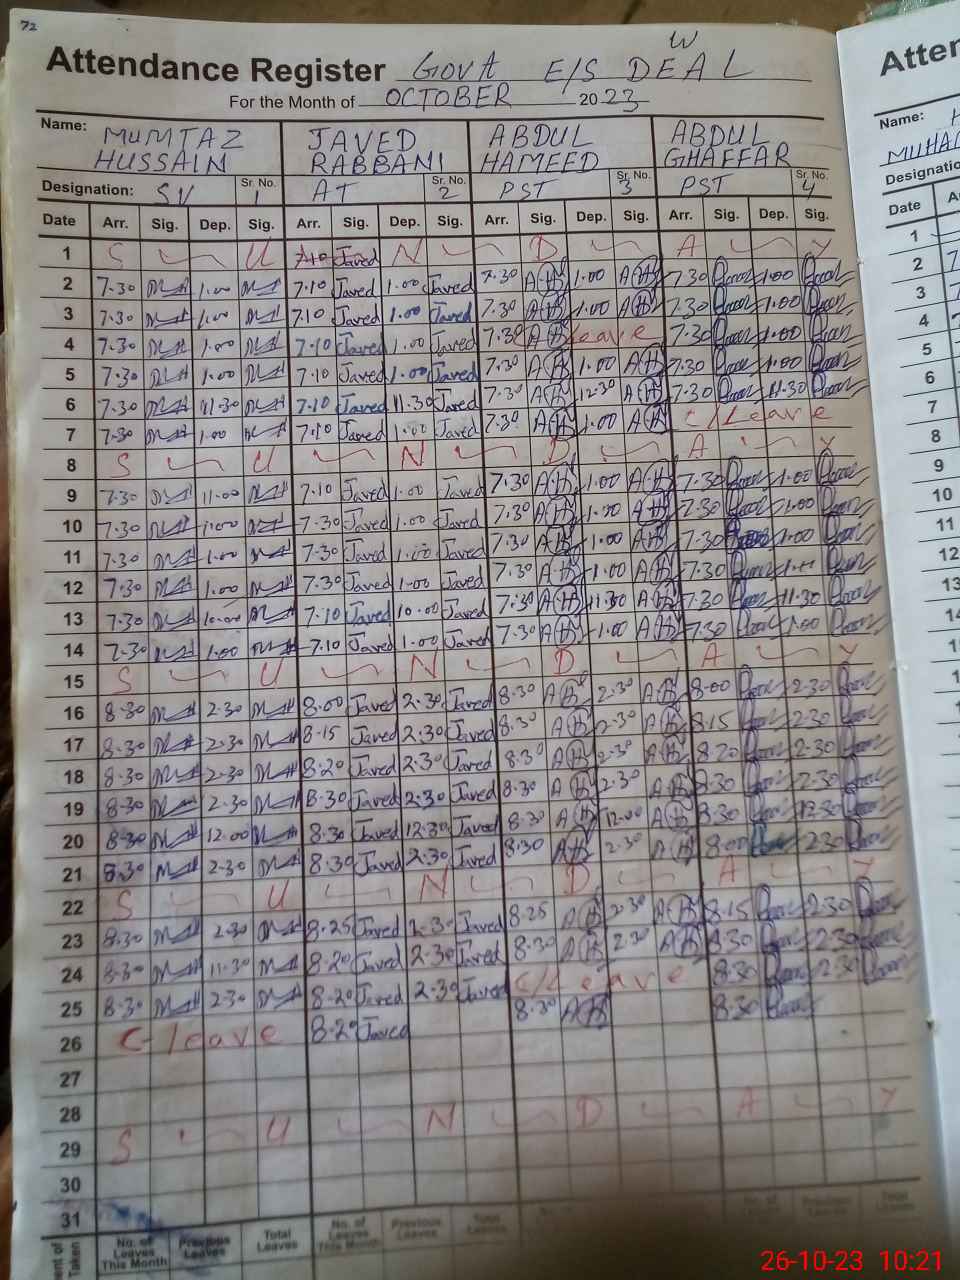 72
W
Attendance Register GOVA E/S DEAL
For the Month of OCTOBER 2023
Name: MUMTAZ HUSSAIN JAVED RABBANI ABDUL HAMEED ABDUL GHAFFAR
Designation: SV Sr. No. 1 AT Sr. No. 2 PST Sr. No. 3 PST Sr. No. 4
Date Arr. Sig. Dep. Sig. Arr. Sig. Dep. Sig. Arr. Sig. Dep. Sig. Arr. Sig. Dep. Sig.
1 S U 7.10 Javed N D A Y
2 7.30 1.00 7.10 Javed 1.00 Javed 7.30 AH 1.00 AH 7.30 1.00
3 7.30 1.00 7.10 Javed 1.00 Javed 7.30 AH 1.00 AH 7.30 1.00
4 7.30 1.00 7.10 Javed 1.00 Javed 7.30 AH leave 7.30 1.00
5 7.30 1.00 7.10 Javed 1.00 Javed 7.30 AH 1.00 AH 7.30 1.00
6 7.30 11.30 7.10 Javed 11.30 Javed 7.30 AH 12.30 AH 7.30 11.30
7 7.30 1.00 7.10 Javed 1.00 Javed 7.30 AH 1.00 AH C/Leave
8 S U N D A Y
9 7.30 11.00 7.10 Javed 1.00 Javed 7.30 AH 1.00 AH 7.30 1.00
10 7.30 1.00 7.30 Javed 1.00 Javed 7.30 AH 1.00 AH 7.30 1.00
11 7.30 1.00 7.30 Javed 1.00 Javed 7.30 AH 1.00 AH 7.30 1.00
12 7.30 1.00 7.30 Javed 1.00 Javed 7.30 AH 1.00 AH 7.30
13 7.30 10.00 7.10 Javed 10.00 Javed 7.30 AH 11.30 AH 7.30 11.30
14 7.30 1.00 7.10 Javed 1.00 Javed 7.30 AH 1.00 AH 7.30 1.00
15 S U N D A Y
16 8.30 2.30 8.00 Javed 2.30 Javed 8.30 AH 2.30 AH 8.00 2.30
17 8.30 2.30 8.15 Javed 2.30 Javed 8.30 AH 2.30 AH 8.15 2.30
18 8.30 2.30 8.20 Javed 2.30 Javed 8.30 AH 2.30 AH 8.20 2.30
19 8.30 2.30 8.30 Javed 2.30 Javed 8.30 AH 2.30 AH 8.30 2.30
20 8.30 12.00 8.30 Javed 12.30 Javed 8.30 AH 12.00 AH 8.30 12.30
21 8.30 2.30 8.30 Javed 2.30 Javed 8.30 AH 2.30 AH 8.00 2.30
22 S U N D A Y
23 8.30 2.30 8.25 Javed 2.30 Javed 8.25 AH 2.30 AH 8.15 2.30
24 8.30 11.30 8.20 Javed 2.30 Javed 8.30 AH 2.30 AH 8.30 2.30
25 8.30 2.30 8.20 Javed 2.30 Javed C/Leave 8.30 2.30
26 C-leave 8.20 Javed 8.30 AH 8.30
27
28
29 S U N D A Y
30
31
No. of Leaves This Month Previous Leaves Total Leaves No. of Leaves This Month Previous Leaves Total Leaves No. of Leaves Previous Leaves Total Leaves
Taken
Name:
Date
1
2
3
4
5
6
7
8
9
10
11
12
13
26-10-23 10:21